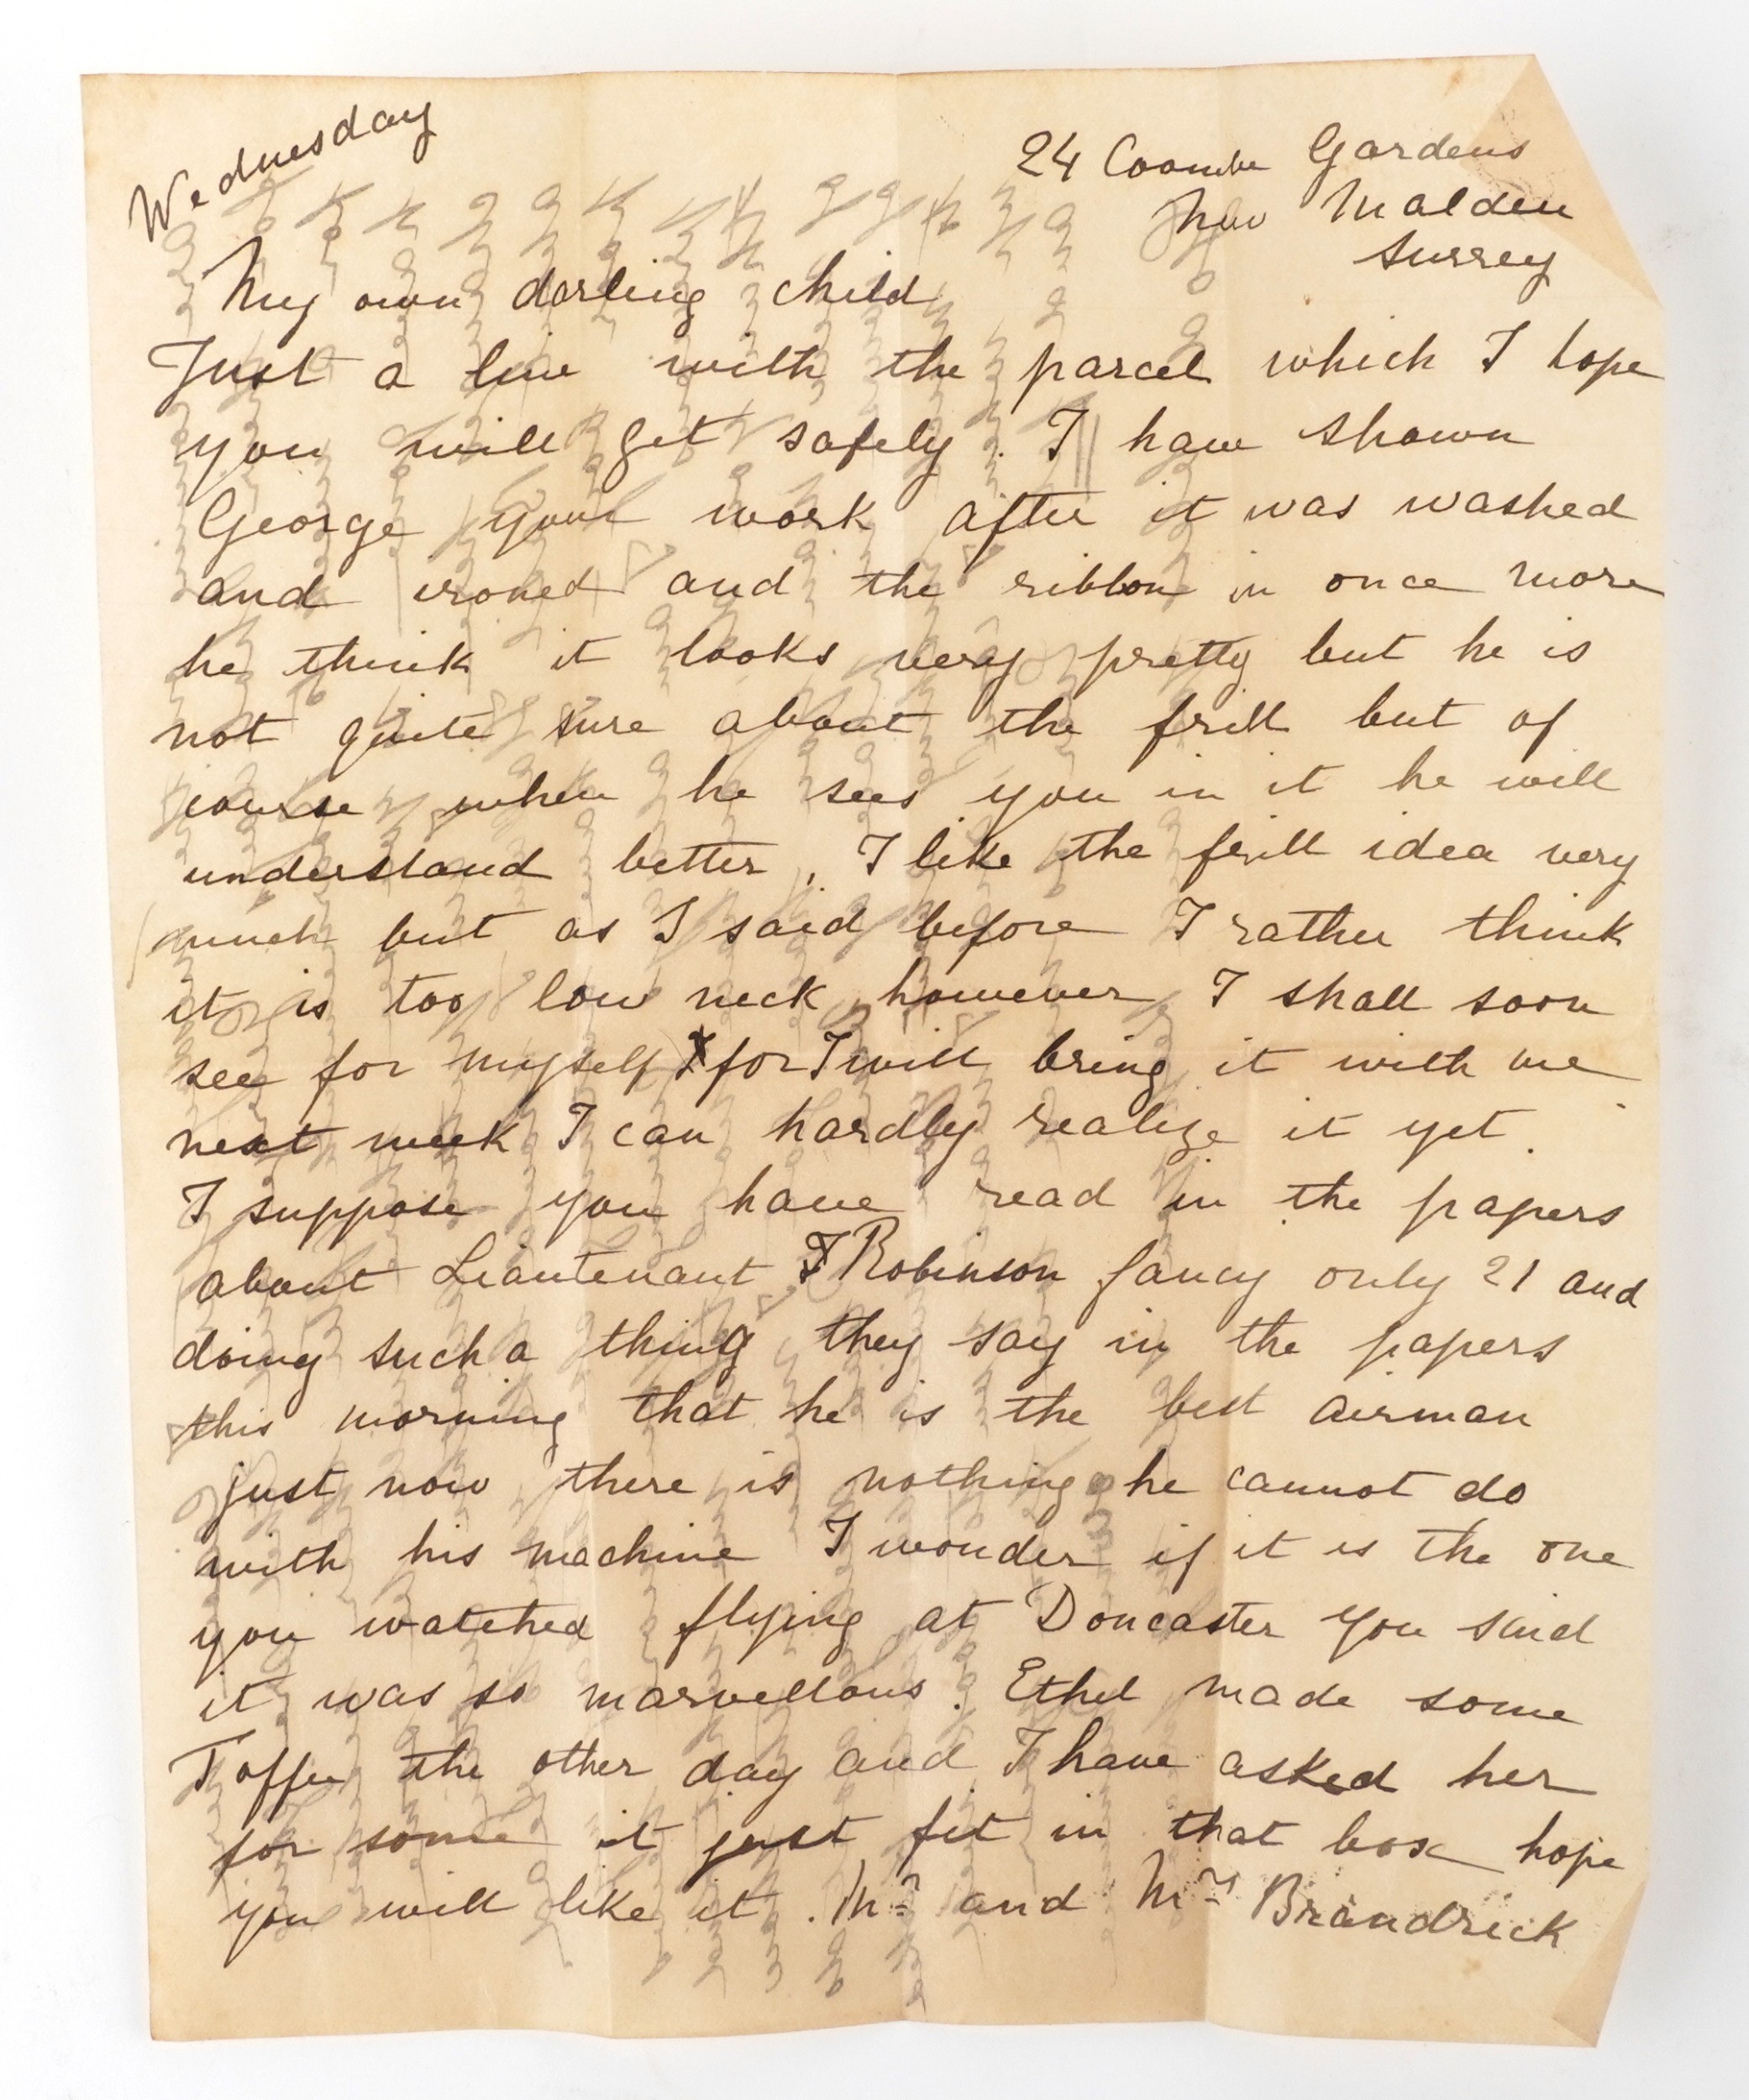 Wednesday
24 Coombe Gardens
New Malden
Surrey
My own darling child
Just a line with the parcel which I hope
you will get safely. I have shown
George your work after it was washed
and ironed and the ribbon in once more
he think it looks very pretty but he is
not quite sure about the frill but of
course when he sees you in it he will
understand better, I like the frill idea very
much but as I said before I rather think
it is too low neck, however I shall soon
see for myself for I will bring it with me
next week I can hardly realize it yet.
I suppose you have read in the papers
about Lieutenant Robinson fancy only 21 and
doing such a thing they say in the papers
this morning that he is the best airman
just now there is nothing he cannot do
with his machine I wonder if it is the one
you watched flying at Doncaster you said
it was so marvellous. Ethel made some
Toffee the other day and I have asked her
for some it just fit in that box hope
you will like it. Mr and Mrs Brandrick